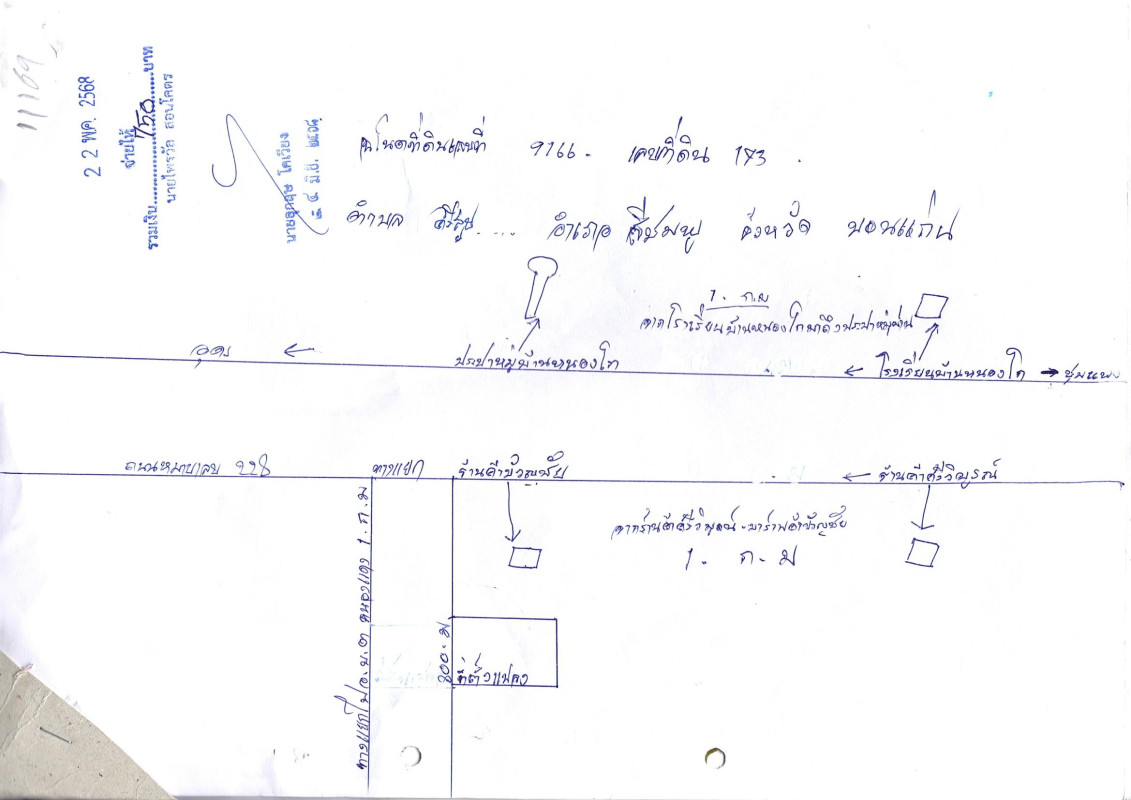 11169
22 พ.ค. 2568
จ่ายให้
รวมเงิน..............บาท
นายไพรวัล สอนโคตร
นายอุกฤษ โคเวียง
โฉนดที่ดินเลขที่ 9166. เลขที่ดิน 173.
ตำบล .... อำเภอ สีชมพู จังหวัด ขอนแก่น
1. ก.ม
จากโรงเรียนบ้านหนองโกมาถึงประปาหมู่บ้าน
อุดร ← ประปาหมู่บ้านหนองโก
← โรงเรียนบ้านหนองโก → ชุมแพ
ถนนหมายเลข 228 ทางแยก ร้านค้าบัวญชัย ← ร้านค้าศรีวิบูรณ์
1. ก. ม
ทางแยกไป อ.บ.ต หนองแดง 1. ก. ม
200. ม
ที่ตั้งแปลง